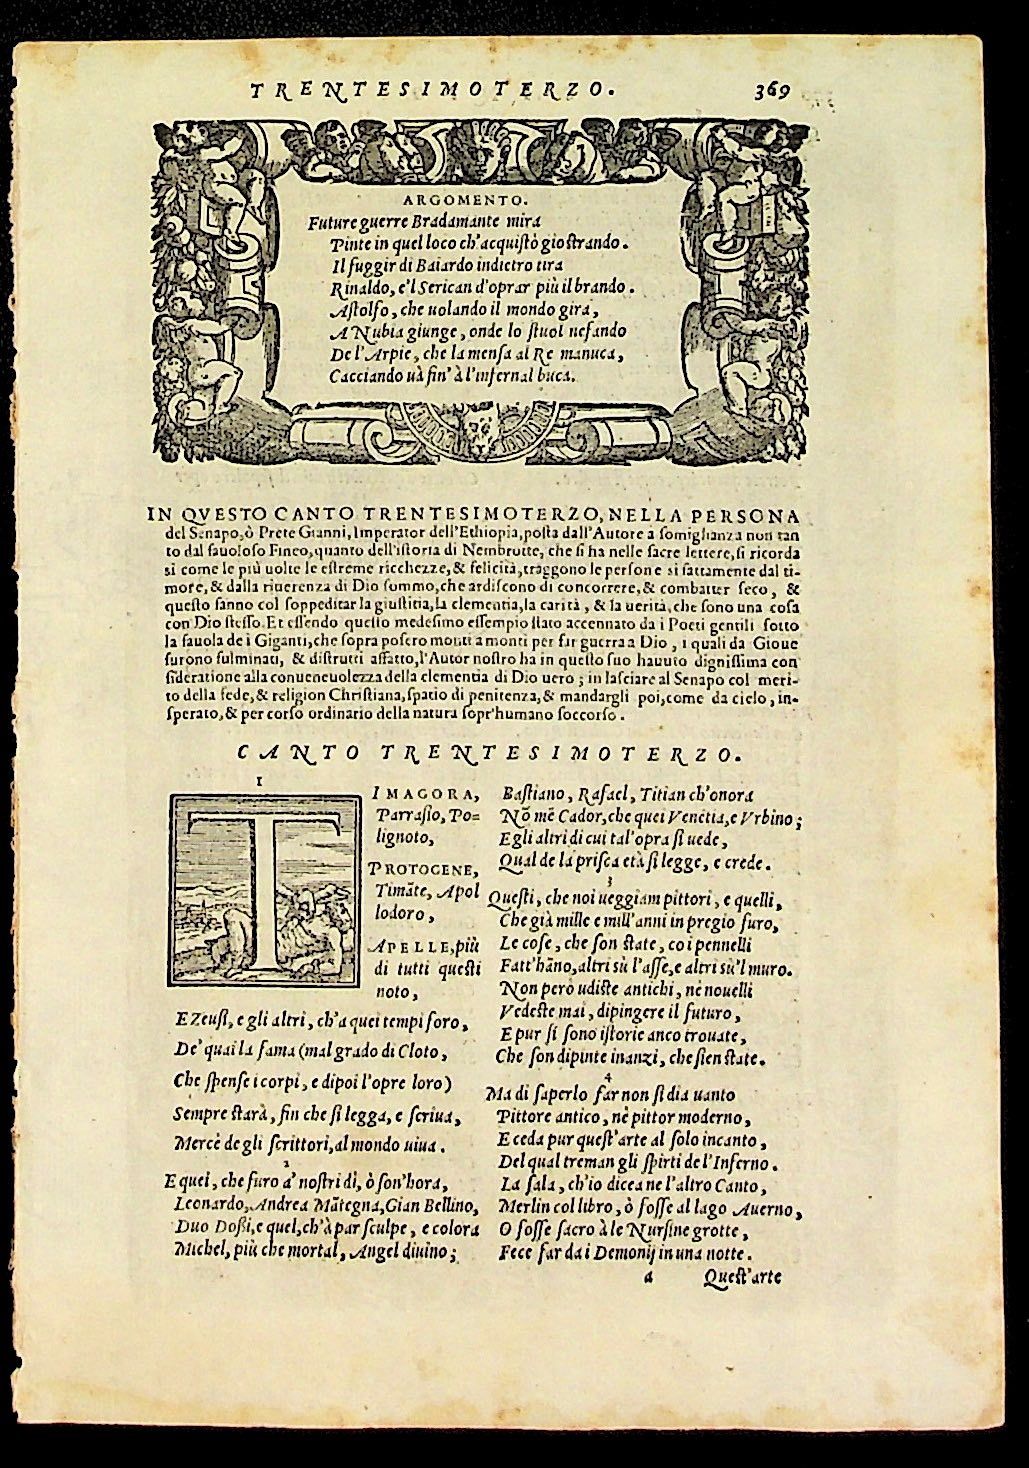 TRENTESIMOTERZO. 369
ARGOMENTO.
Future guerre Bradamante mira
Pinte in quel loco ch'acquistò giostrando.
Il fuggir di Baiardo indietro tira
Rinaldo, e'l Serican d'oprar più il brando.
Astolfo, che uolando il mondo gira,
A Nubia giunge, onde lo stuol nefando
De l'Arpie, che la mensa al Re manuca,
Cacciando uà fin' à l'infernal buca.
IN QVESTO CANTO TRENTESIMOTERZO, NELLA PERSONA
del Senapo, ò Prete Gianni, Imperator dell'Ethiopia, posta dall'Autore a somiglianza non tan
to dal fauoloso Fineo, quanto dell'istoria di Nembrotte, che si ha nelle sacre lettere, si ricorda
si come le più uolte le estreme ricchezze, & felicità, traggono le persone si fattamente dal ti-
more, & dalla riuerenza di Dio sommo, che ardiscono di concorrere, & combatter seco, &
questo fanno col soppeditar la giustitia, la clementia, la carità, & la uerità, che sono una cosa
con Dio stesso. Et essendo questo medesimo essempio stato accennato da i Poeti gentili sotto
la fauola de i Giganti, che sopra posero monti a monti per far guerra a Dio, i quali da Gioue
furono fulminati, & distrutti affatto, l'Autor nostro ha in questo suo hauuto dignissima con
sideratione alla conueneuolezza della clementia di Dio uero; in lasciare al Senapo col meri-
to della fede, & religion Christiana, spatio di penitenza, & mandargli poi, come da cielo, in-
sperato, & per corso ordinario della natura sopr'humano soccorso.
CANTO TRENTESIMOTERZO.
1
TIMAGORA,
Parrasio, Po=
lignoto,
PROTOGENE,
Timāte, Apol
lodoro,
APELLE, più
di tutti questi
noto,
E Zeusi, e gli altri, ch'a quei tempi foro,
De' quai la fama (mal grado di Cloto,
Che spense i corpi, e dipoi l'opre loro)
Sempre starà, fin che si legga, e scriua,
Mercè de gli scrittori, al mondo uiua.
2
E quei, che furo a' nostri dì, ò son' hora,
Leonardo, Andrea Mātegna, Gian Bellino,
Duo Dossi, e quel, ch'à par sculpe, e colora
Michel, più che mortal, Angel diuino;
Bastiano, Rafael, Titian ch'onora
Nō mē Cador, che quei Venetia, e Vrbino;
E gli altri di cui tal'opra si uede,
Qual de la prisca età si legge, e crede.
3
Questi, che noi ueggiam pittori, e quelli,
Che già mille e mill'anni in pregio furo,
Le cose, che son state, co i pennelli
Fatt'hāno, altri sù l'asse, e altri sù'l muro.
Non però udiste antichi, nè nouelli
Vedeste mai, dipingere il futuro,
E pur si sono istorie anco trouate,
Che son dipinte inanzi, che sien state.
4
Ma di saperlo far non si dia uanto
Pittore antico, nè pittor moderno,
E ceda pur quest'arte al solo incanto,
Del qual treman gli spirti de l'Inferno.
La sala, ch'io dicea ne l'altro Canto,
Merlin col libro, ò fosse al lago Auerno,
O fosse sacro à le Nursine grotte,
Fece far da i Demonij in una notte.
a Quest'arte